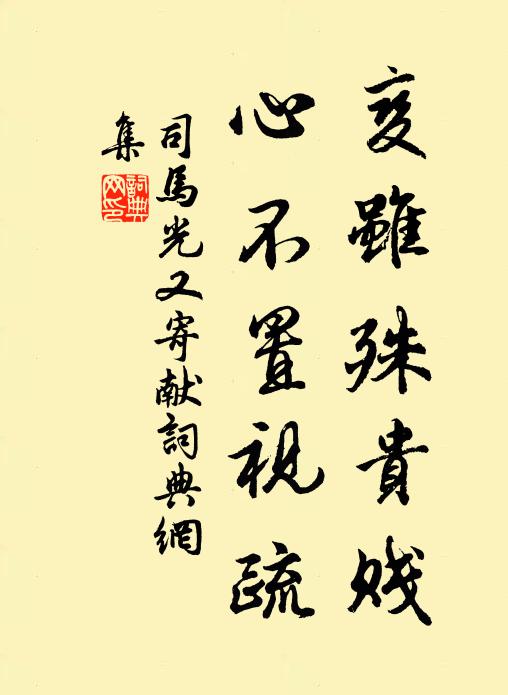 雖殊貴賤
心不置視疏
司馬光又寄獻詞典網
集
詞典網印